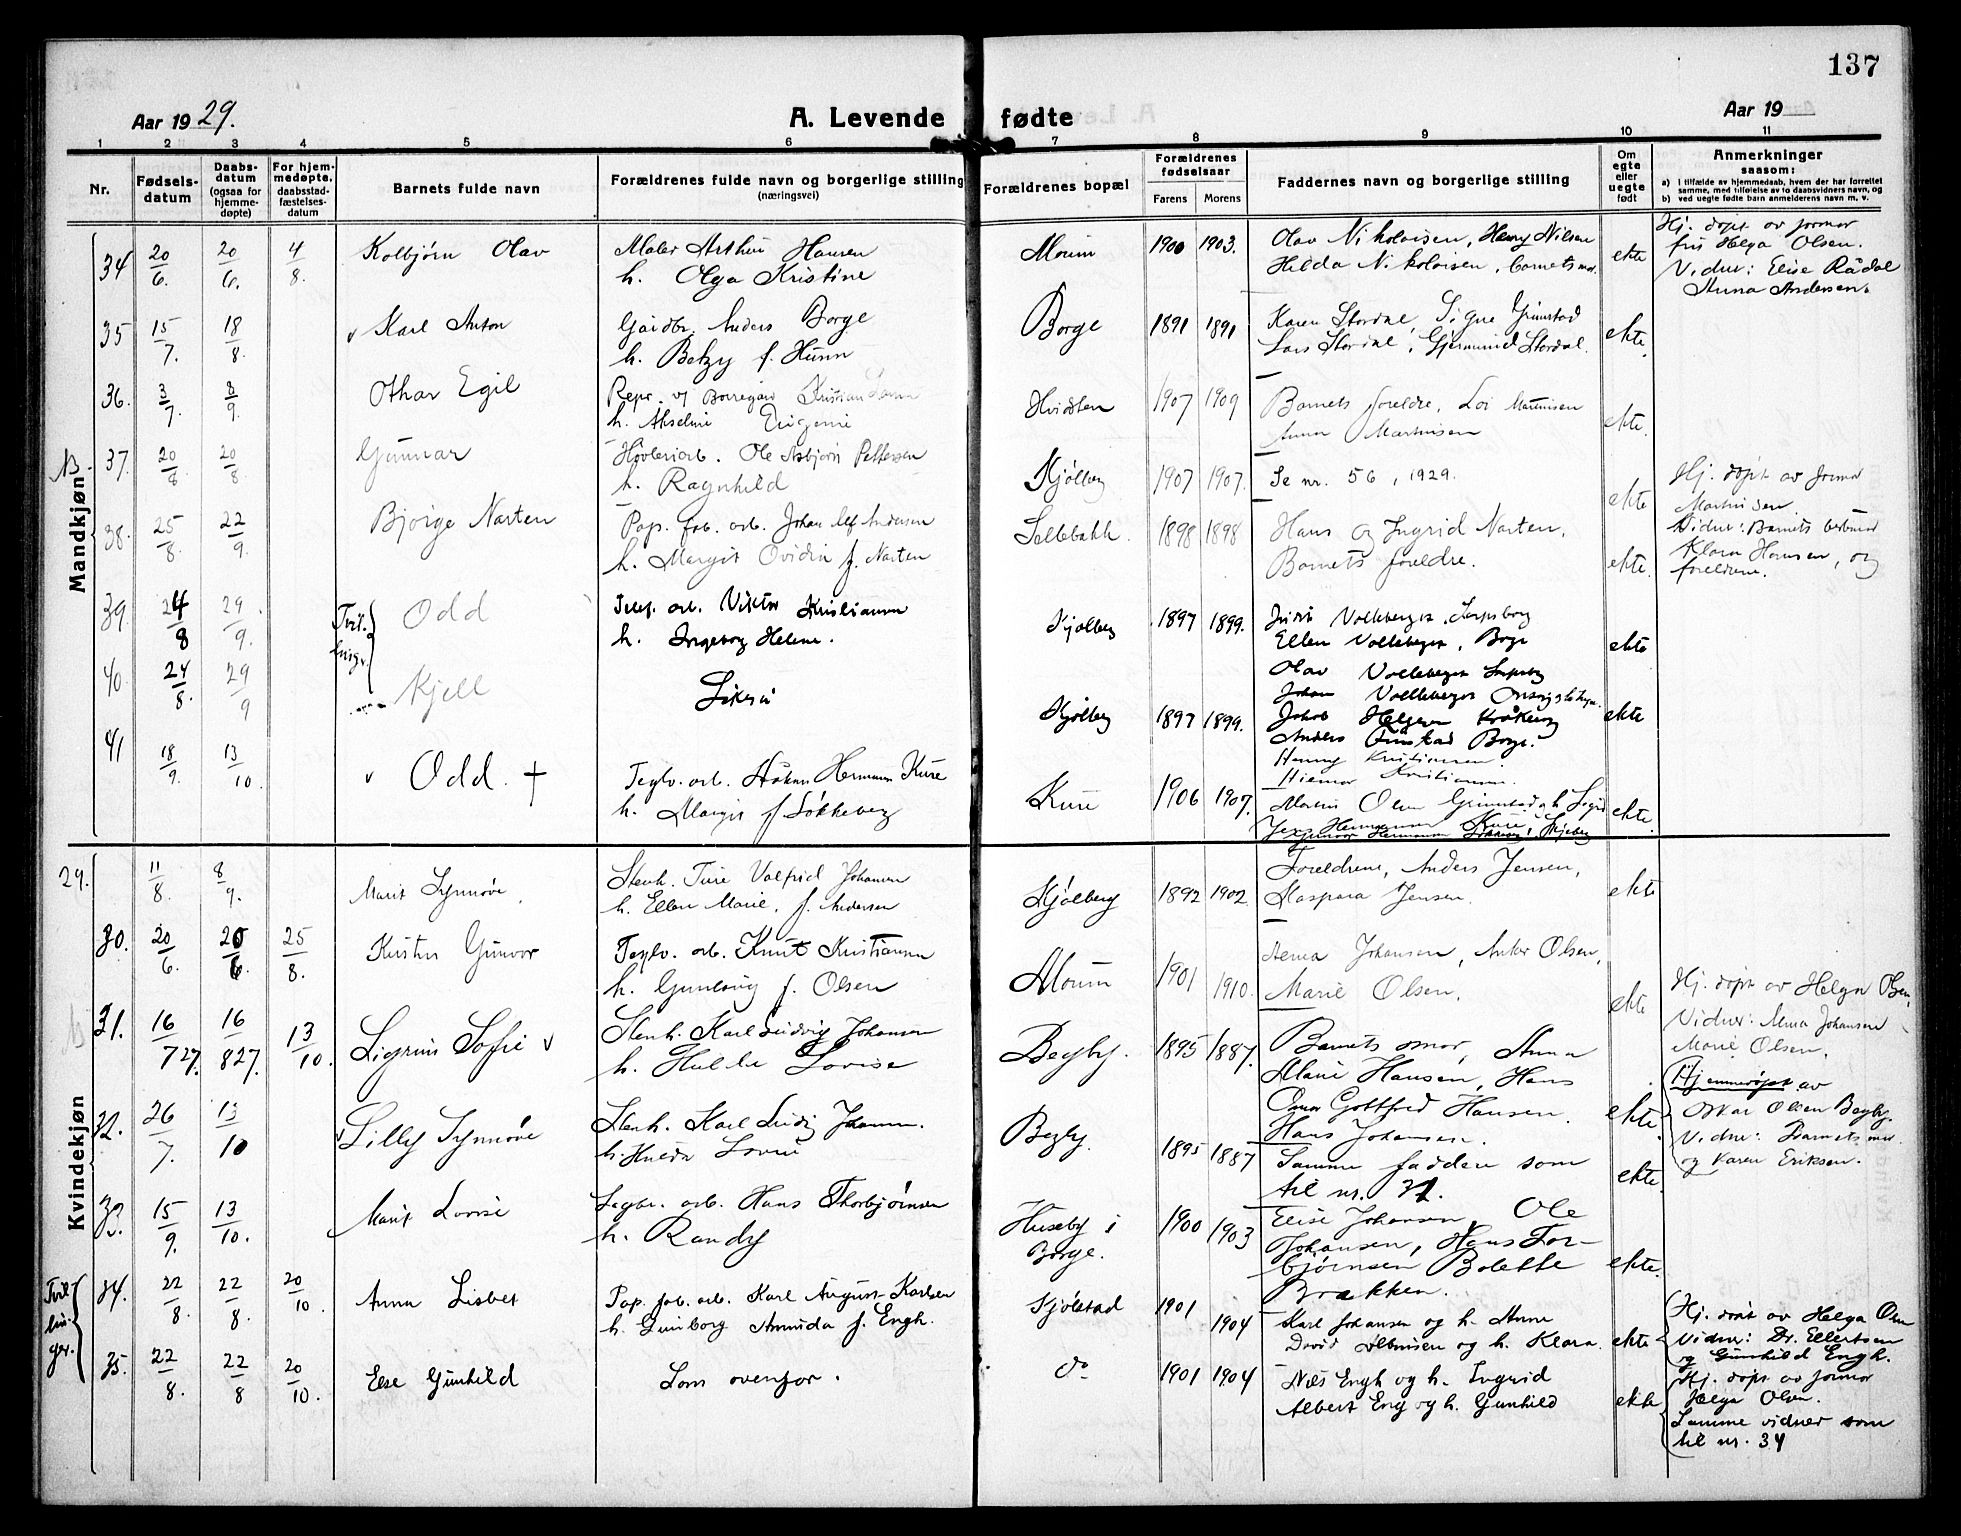 137
Aar 1929.
A. Levende fødte
Aar 19
1 2 3 4 5 6 7 8 9 10 11
Nr.
Fødsels-
datum
Daabs-
datum
(ogsaa for
hjemme-
døpte)
For hjem-
medøpte,
daabsstad-
fæstelses-
datum
Barnets fulde navn
Forældrenes fulde navn og borgerlige stilling
(næringsvei)
Forældrenes bopæl
Forældrenes
fødselsaar
Farens Morens
Faddernes navn og borgerlige stilling
Om
egte
eller
uegte
født
Anmerkninger
saasom:
a) i tilfælde av hjemmedaab, hvem der har forrettet
samme, med tilføielse av to daabsvidners navn, og
b) ved uegte fødte barn anmelderens navn m. v.
Mandkjøn
34 20/6. 20/6. 4/8. Kolbjørn Olav
Maler Arthur Hansen
h. Olga Kristine
Moum 1900 1903.
Olav Nikolaisen, Henry Nilsen
Hilda Nikolaisen, barnets mor.
ekte
Hj. døpt av jormor
frk Helga Olsen.
Vidner: Elise Rådal
Anna Andersen.
35 15/7. 18/8. Karl Anton
Gårdbr. Anders Borge
h. Betzy f. Hunn
Borge 1891 1891
Karen Stordal, Signe Grimstad
Lars Stordal, Gjermund Stordal.
ekte.
36. 3/7. 8/9. Othar Egil
Repr. v/ Borregård Kristian
h. Akseline Eugenie
Hvidsten 1907 1909
Barnets foreldre, Martinisen
Anna Martinisen
ekte.
37. 20/8 20/8. Gunnar
Høvleriarb. Ole Asbjørn Pettersen
h. Ragnhild
Kjølberg 1907 1907.
Se nr. 56, 1929.
ekte
Hj. døpt av Jormor
Martinisen.
Vidner: Barnets bestemor
Klara Hansen, og
foreldrene.
38. 25/8. 22/9. Bjørge Narten
Pap. fab. arb. Johan Alf Andersen
h. Margit Ovidia f. Narten
Sellebakk. 1898 1898
Hans og Ingrid Narten.
Barnets foreldre.
ekte.
39. 24/8 29/9. Tvil- Odd
linger
Telef. arb. Viktor Kristiansen
h. Ingeborg Helene.
Kjølberg 1897 1899.
Volleberger, Sarpsborg
Ellen Volleberger, Borge
ekte
40. 24/8. 29/9 Kjell
Kjølberg 1897 1899.
Olav Volleberger
Johan Volleberger
Jakob Helgesen
Anders Borge.
Henny Kristiansen.
Hjelmar Kristiansen.
ekte
41 18/9. 13/10. Odd. †
Teglv. arb. Håkon Hermann Kure
h. Margit f Løkkeberg
Kure 1906 1907.
Olsen Grimstad
ekte.
Kvindekjøn
29. 11/8. 8/9. Marit Synnøve
Stenh. Ture Valfrid Johansen
h. Ellen Marie, f. Andersen
Kjølberg 1892 1902
Foreldrene, Anders Jensen,
Kaspara Jensen.
ekte
30. 20/6. 20/6. 25/8. Kirsten Gunvor
Teglv. arb. Knut Kristiansen
h. Gunlaug f. Olsen
Moum 1901 1910.
Alma Johansen, Anker Olsen,
Marie Olsen.
ekte
Hj. døpt av Helga Olsen,
Vidner: Alma Johansen
Marie Olsen.
31. 16/7 27. 16/8 27. 13/10. Sigrun Sofie
Stenh. Karl Ludvig Johansen
h. Hulda Lovise
Begby. 1895 1887.
Barnets mor, Anna
Marie Hansen, Hans
Oscar Gottfred Hansen.
Hans Johansen.
ekte.
Hjemmedøpt av
Oskar Olsen Begby.
Vidner: Barnets mor
og Karen Eriksen.
32. 26/7. 13/10 Lilly Synnøve
Stenh. Karl Ludvig Johansen.
h. Hulda Lovise
Begby. 1895 1887
Samme faddere som
til nr. 31.
ekte.
33. 15/9. 13/10. Marit Lovise
Sagbr. arb. Hans Thorbjørnsen
h. Randy
Huseby i
Borge.
1900 1903
Elise Johansen, Ole
Johansen, Hans Tor-
bjørnsen Bolette
Brekken.
ekte.
Tvil
lin-
ger.
34. 22/8. 22/8. 20/10. Anna Lisbet
Pap. fab. arb. Karl August Karlsen
h. Gunborg Amunda f. Engh.
Kjølstad 1901 1904
Karl Johansen og h. Anna
David Albinisen og h. Klara.
ekte
Hj. døpt av Helga Olsen
Vidner: Dr. Ellertsen
og Gunhild Engh.
35. 22/8. 22/8 20/10. Else Gunhild
Som ovenfor.
do 1901 1904
Nils Engh og h. Ingrid
Albert Eng og h. Gunhild
ekte
Hj. døpt av jormor
Helga Olsen.
Samme vidner som
til nr. 34